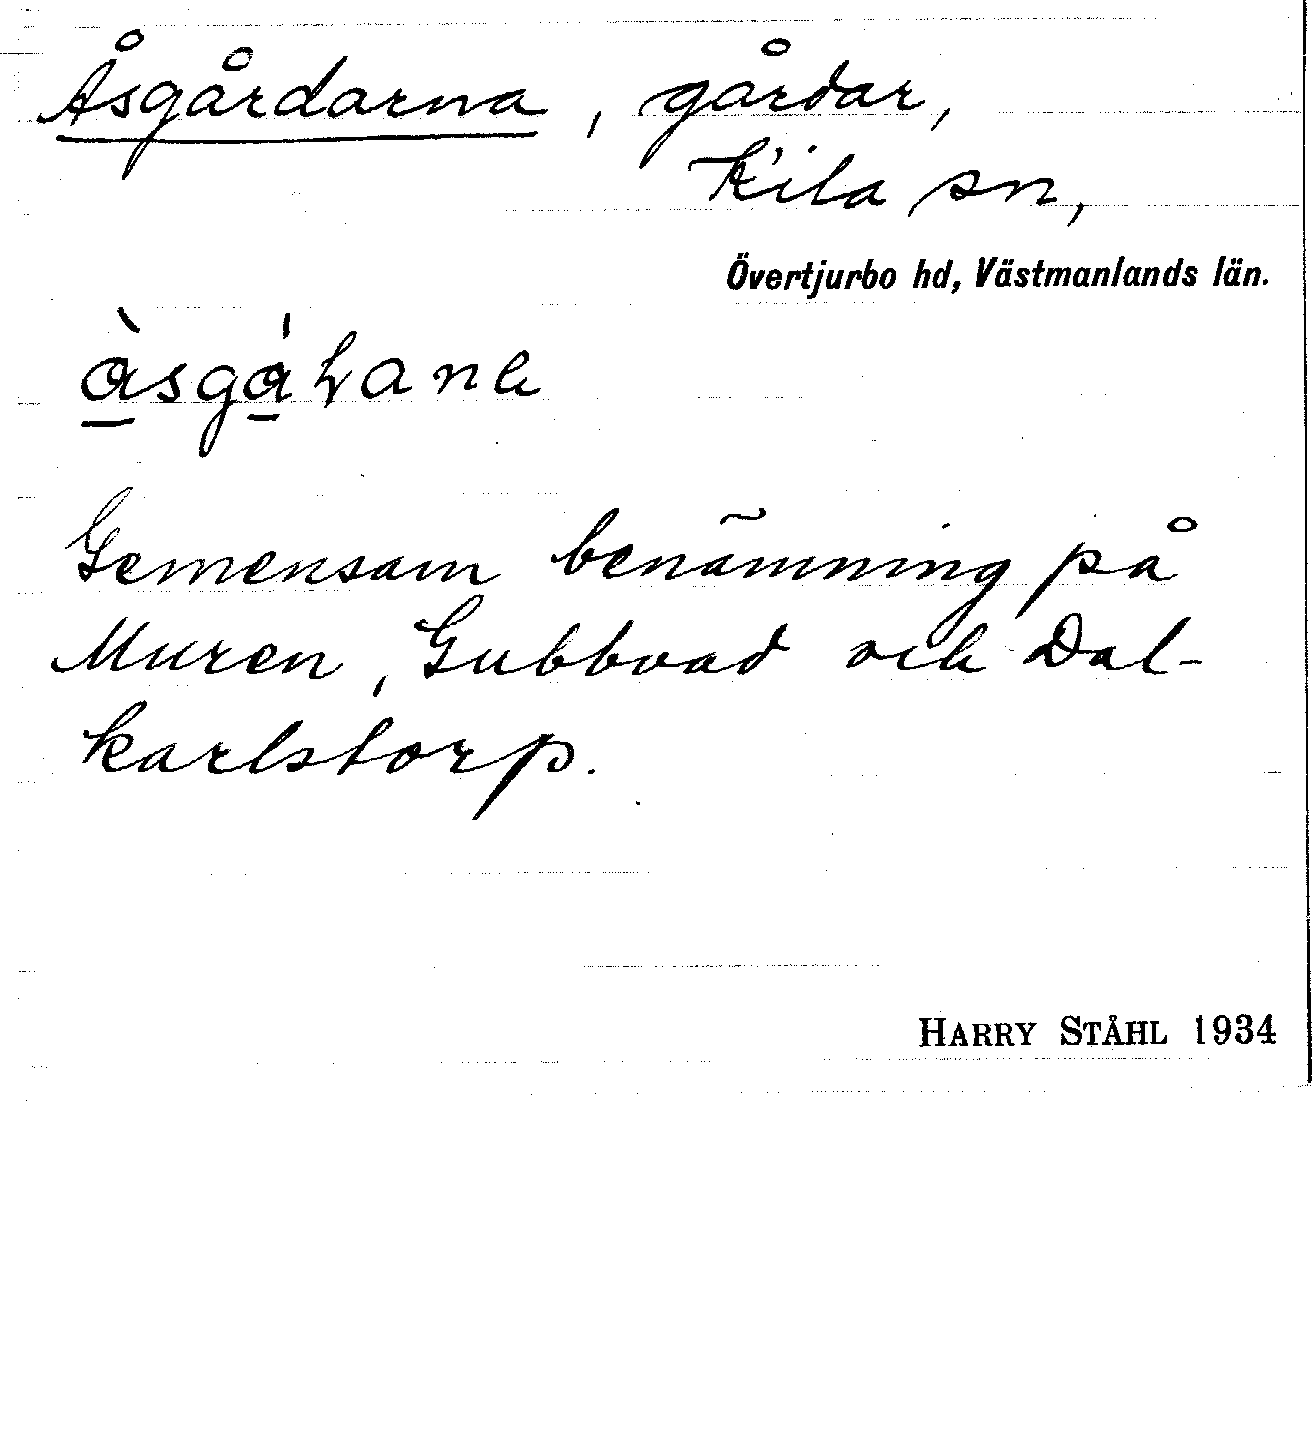 Åsgårdarna, gårdar,
Kila sn,
Övertjurbo hd, Västmanlands län.
Gemensam benämning på
Muren, Gubbvad och Dal-
karlstorp.
HARRY STÅHL 1934